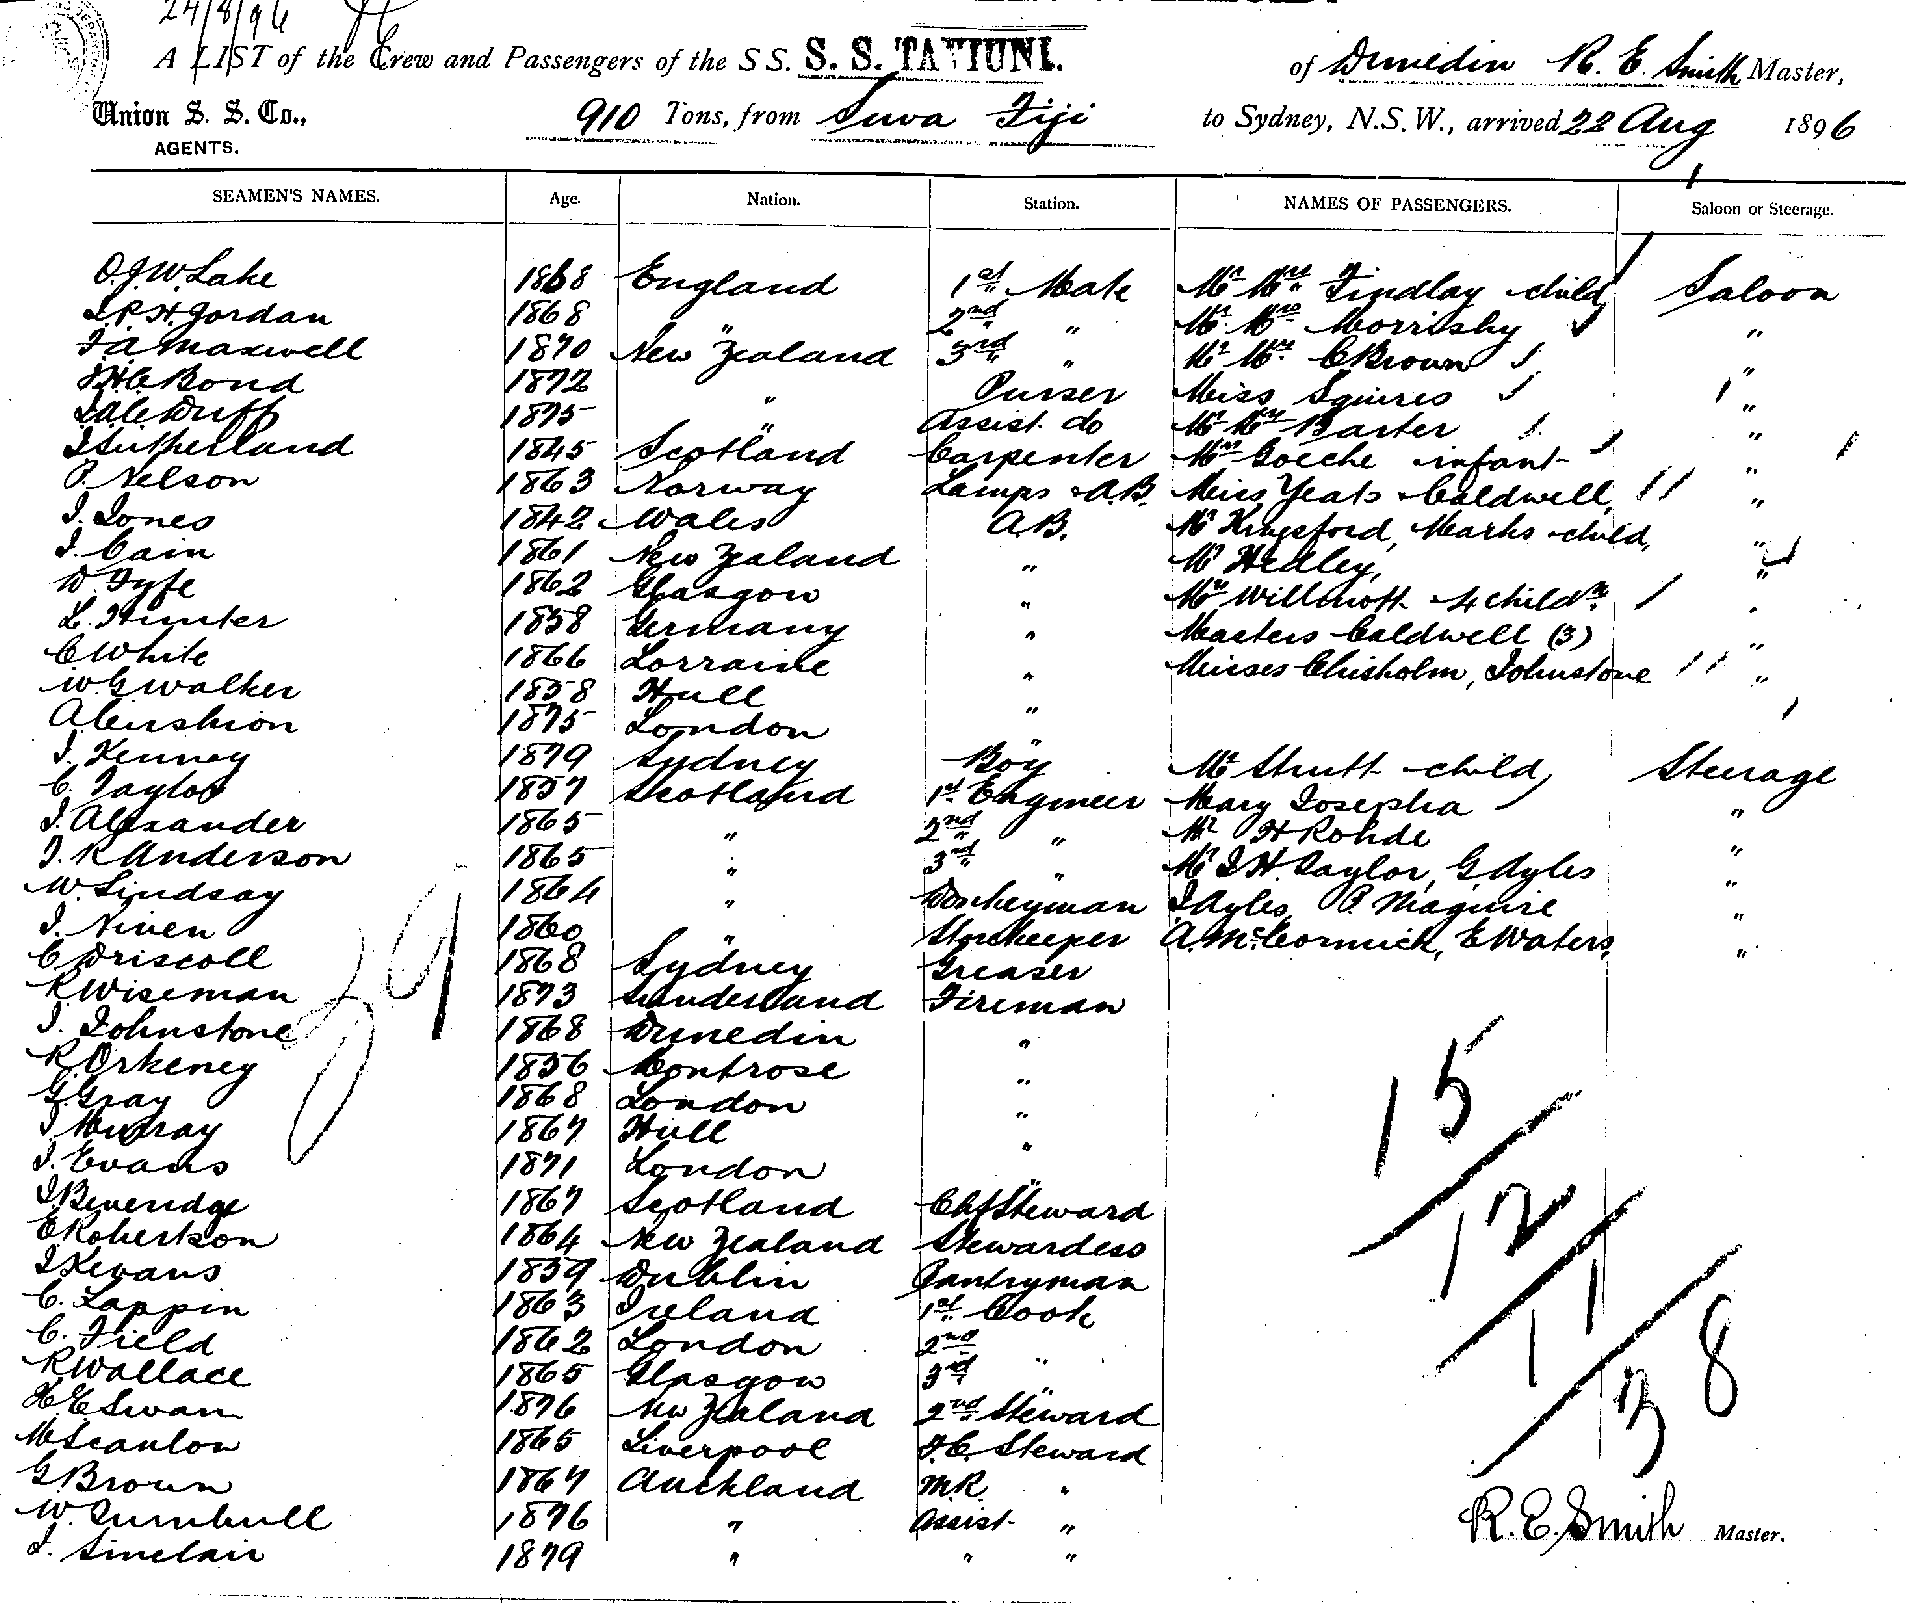 24/8/96
A LIST of the Crew and Passengers of the SS. S. S. TAVIUNI. of Dunedin R. E. Smith Master,
Union S. S. Co., 910 Tons, from Suva Fiji to Sydney, N.S.W., arrived 22 Aug 1896
AGENTS.
SEAMEN'S NAMES. Age. Nation. Station. NAMES OF PASSENGERS. Saloon or Steerage.
O.J.W. Lake 1868 England 1st Mate Mr Mrs Findlay child Saloon
J.P.H. Jordan 1868 " 2nd " Mr Mrs Morrisby "
F A Maxwell 1870 New Zealand 3rd " Mr Mrs C Brown "
Bond 1872 " Purser Miss Squires "
Duff 1875 " Assist do Mr Mrs Barter "
J Sutherland 1845 Scotland Carpenter Mrs Goeche infant "
P. Nelson 1863 Norway Lamps & A.B. Miss Yeats Caldwell, "
J. Jones 1842 Wales A.B. Mr Kingsford, Marks child, "
J. Cain 1861 New Zealand " Mr Hedley, "
D. Fyfe 1862 Glasgow " Mrs Willmott 4 childn
L. Hunter 1858 Germany " Masters Caldwell (3) "
C White 1866 Lorraine " Misses Chisholm, Johnstone "
W.G Walker 1858 Hull "
A Cushion 1875 London "
J. Kenney 1879 Sydney Boy Mr Strutt child, Steerage
C. Taylor 1857 Scotland 1st Engineer Mary Josepha "
J. Alexander 1865 " 2nd " Mr H Rohde "
J. R Anderson 1865 " 3rd " Mr J H. Taylor, G Ayles "
W. Lindsay 1864 " Donkeyman J Ayles P. Maguire "
J. Niven 1860 " Storekeeper A. McCormick, E Waters, "
C Driscoll 1868 Sydney Greaser
R Wiseman 1873 Sunderland Fireman
J. Johnstone 1868 Dunedin "
R. Orkeney 1856 Montrose "
G Gray 1868 London "
J Murray 1867 Hull "
J. Evans 1871 London "
J Beveridge 1867 Scotland Chf Steward
E Robertson 1864 New Zealand Stewardess
J Kevans 1859 Dublin Pantryman
C. Lappin 1863 Ireland 1st Cook
C. Field 1862 London 2nd "
R Wallace 1865 Glasgow 3rd "
H E Swan 1876 New Zealand 2nd Steward
M Scanlon 1865 Liverpool F.C. Steward
G Brown 1867 Auckland M.R. "
W. Turnbull 1876 " Assist "
J. Sinclair 1879 " " "
39
15
12
11
38
R. E. Smith Master.